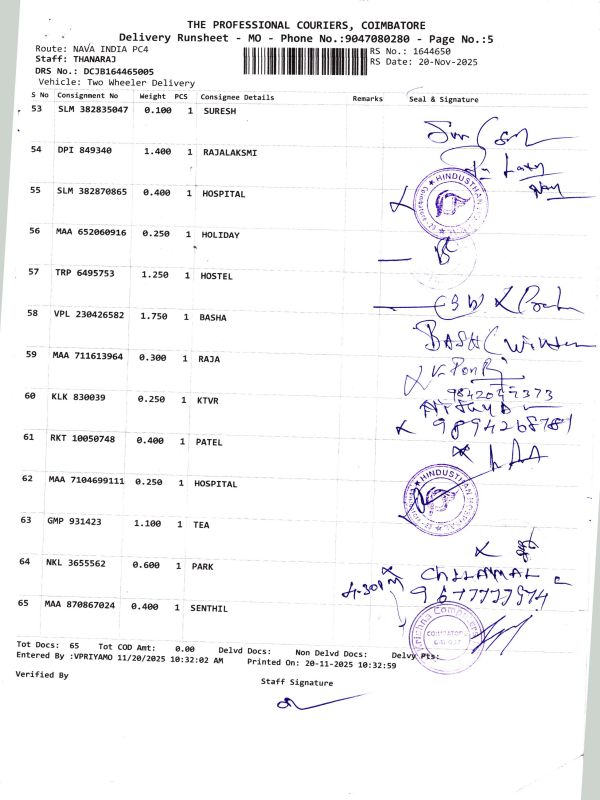 THE PROFESSIONAL COURIERS, COIMBATORE
Delivery Runsheet - MO - Phone No.:9047080280 - Page No.:5
Route: NAVA INDIA PC4 RS No.: 1644650
Staff: THANARAJ RS Date: 20-Nov-2025
DRS No.: DCJB164465005
Vehicle: Two Wheeler Delivery
S No Consignment No Weight PCS Consignee Details Remarks Seal & Signature
53 SLM 382835047 0.100 1 SURESH
54 DPI 849340 1.400 1 RAJALAKSMI
55 SLM 382870865 0.400 1 HOSPITAL
HINDUSTHAN
56 MAA 652060916 0.250 1 HOLIDAY
57 TRP 6495753 1.250 1 HOSTEL
58 VPL 230426582 1.750 1 BASHA
59 MAA 711613964 0.300 1 RAJA
60 KLK 830039 0.250 1 KTVR
9894268781
61 RKT 10050748 0.400 1 PATEL
62 MAA 7104699111 0.250 1 HOSPITAL
HINDUSTHAN HOSPITAL
63 GMP 931423 1.100 1 TEA
64 NKL 3655562 0.600 1 PARK
4.30PM
65 MAA 870867024 0.400 1 SENTHIL
Tot Docs: 65 Tot COD Amt: 0.00 Delvd Docs: Non Delvd Docs: Delvy Pts:
Entered By :VPRIYAMO 11/20/2025 10:32:02 AM Printed On: 20-11-2025 10:32:59
Verified By
Staff Signature